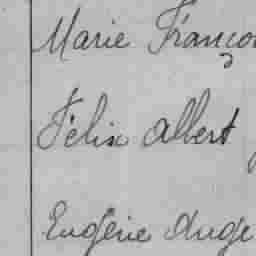 Marie Françoi
Félix Albert
Eugénie Ange